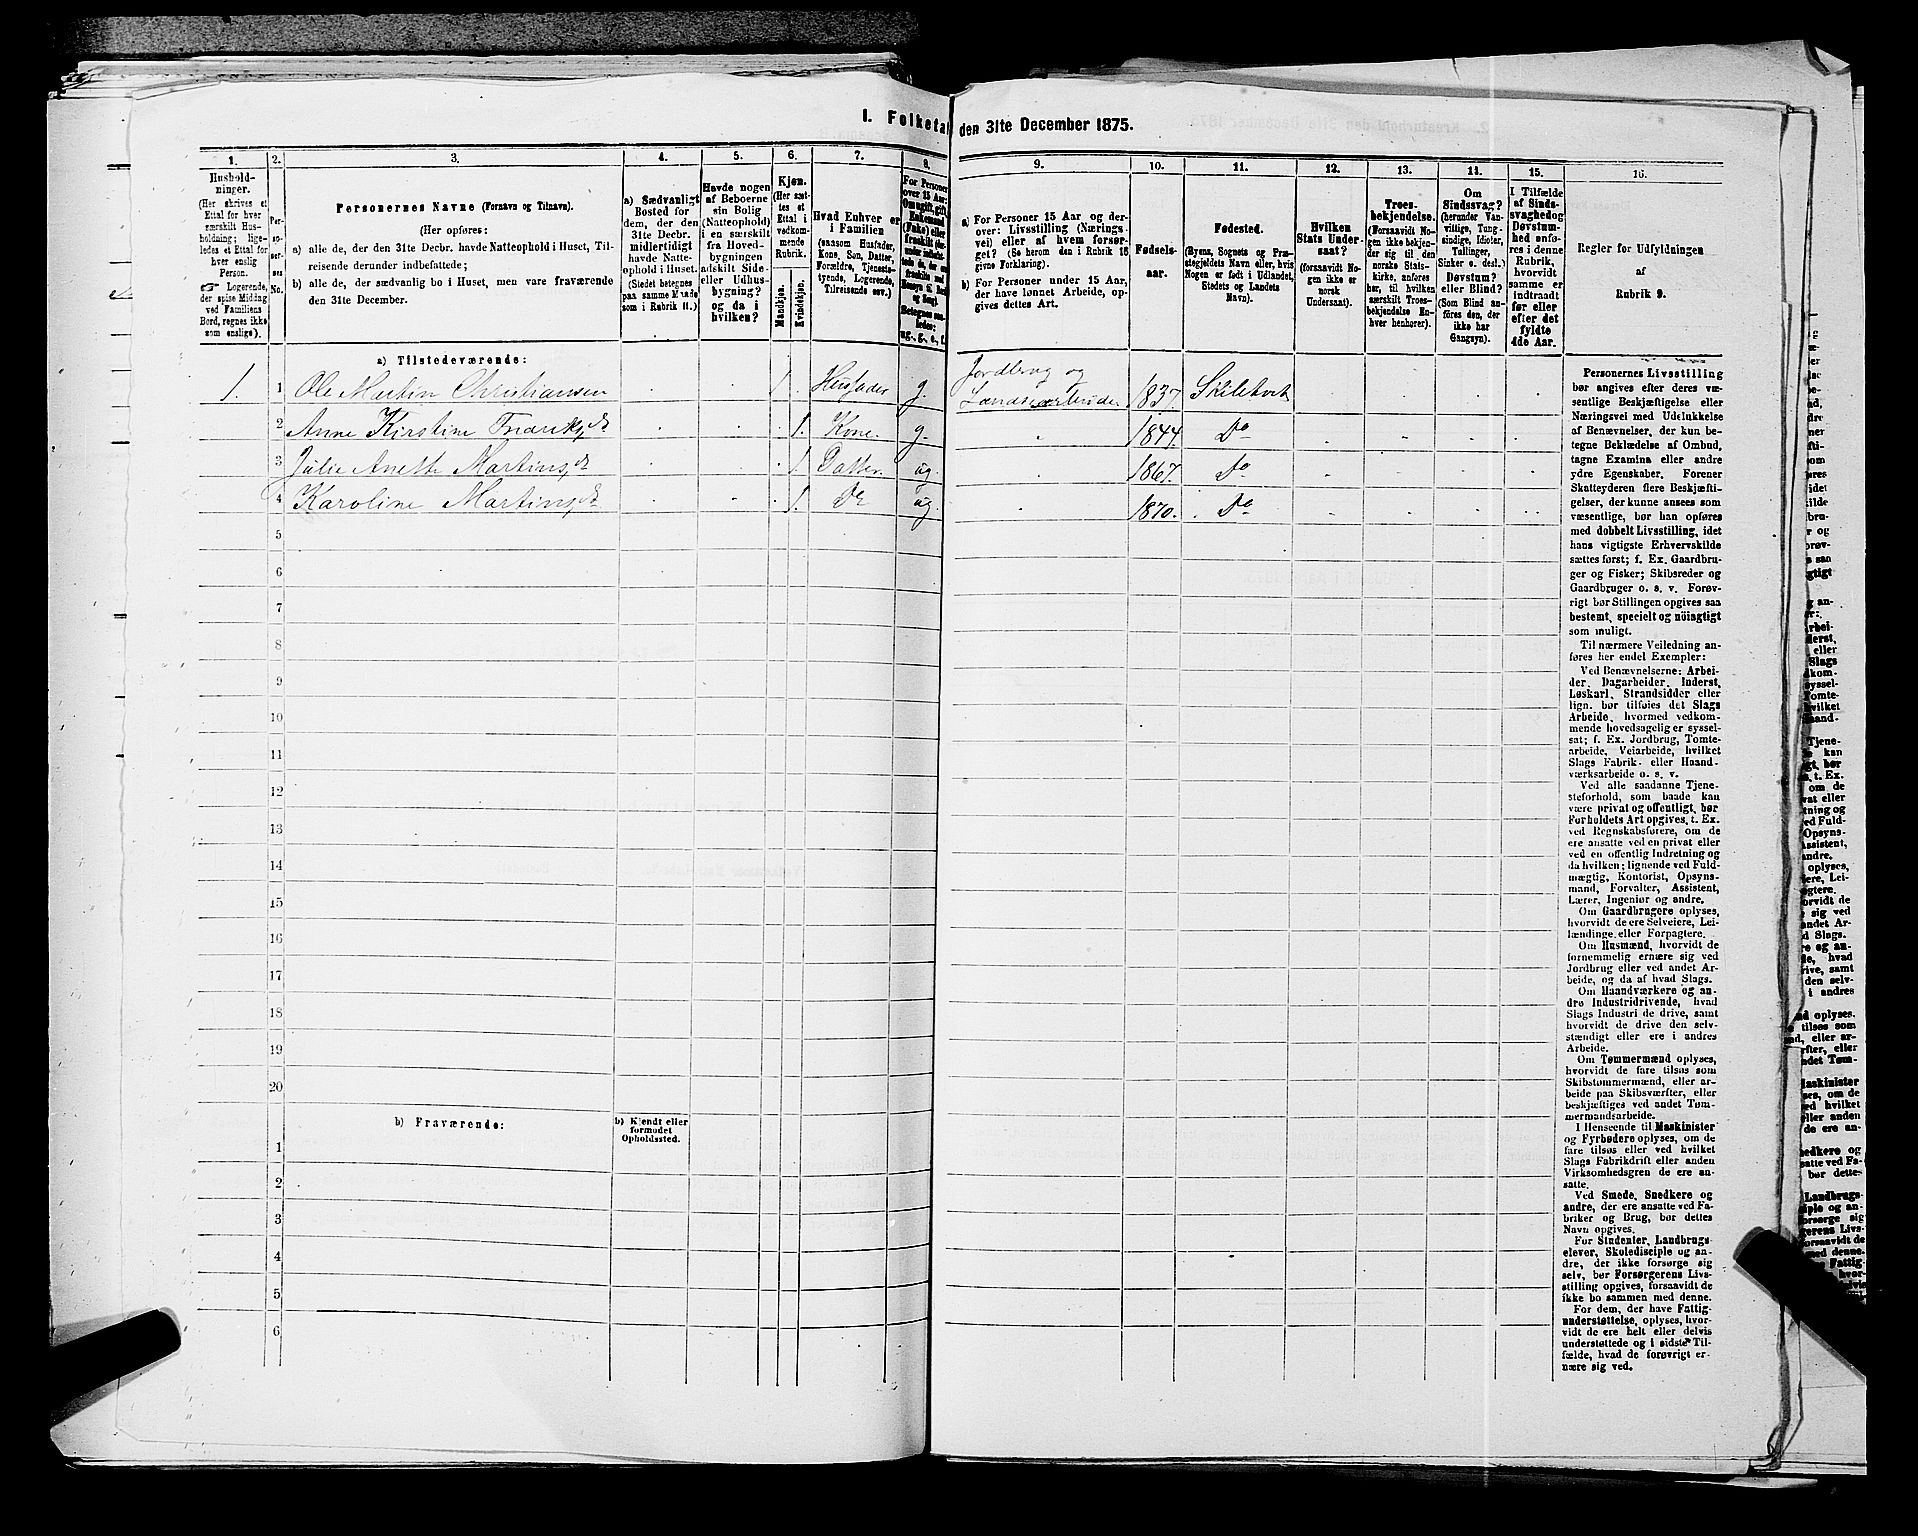 I. Folketal
den 31te December 1875.
1.
2.
3.
4.
5.
6.
7.
8.
Hushold-
ninger.
(Her skrives et
Ettal for hver
særskilt Hus-
holdning; lige-
ledes et Ettal for
hver enslig
Person.
Logerende,
der spise Middag
ved Familiens
Bord, regnes ikke
som enslige).
Per-
so-
ner-
nes
No.
Personernes Navne (Fornavn og Tilnavn).
(Her opføres:
a) alle de, der den 31te Decbr. havde Natteophold i Huset, Til-
reisende derunder indbefattede;
b) alle de, der sædvanlig bo i Huset, men vare fraværende
den 31te December.
a) Sædvanligt
Bosted for
dem, der den
31te Decbr.
midlertidigt
havde Natte-
ophold i Huset.
(Stedet betegnes
paa samme Maade
som i Rubrik 11.)
Havde nogen
af Beboerne
sin Bolig
(Natteophold)
i en særskilt
fra Hoved-
bygningen
adskilt Side-
eller Udhus-
bygning?
og da i
hvilken?
Kjøn.
(Her sæt-
tes et
Ettal i
vedkom-
mende
Rubrik.
Mandkjøn.
Kvindekjøn.
Hvad Enhver er
i Familien
(saasom Husfader,
Kone, Søn, Datter,
Forældre, Tjeneste-
tyende, Logerende,
Tilreisende osv.)
For Personer
over 15 Aar:
Om ugift, gift,
Enkemand
(Enke) eller
fraskilt
Betegnes saa-
ledes:
ug., g., e., f.
9.
10.
11.
12.
13.
14.
15.
16.
a) For Personer 15 Aar og der-
over: Livsstilling (Nærings-
vei) eller af hvem forsør-
get? (Se herom den i Rubrik 16
givne Forklaring).
b) For Personer under 15 Aar,
der have lønnet Arbeide, op-
gives dettes Art.
Fødsels-
aar.
Fødested.
(Byens, Sognets og Præ-
stegjeldets Navn eller, hvis
Nogen er født i Udlandet,
Stedets og Landets
Navn).
Hvilken
Stats Under-
saat?
(forsaavidt No-
gen ikke er
norsk
Undersaat).
Troes-
bekjendelse.
(Forsaavidt No-
gen ikke bekjen-
der sig til den
norske Stats-
kirke, anføres
her, til hvilken
særskilt Troes-
bekjendelse En-
hver henhører).
Om
Sindssvag?
(herunder Van-
vittige, Tung-
sindige, Idioter,
Tullinger,
Sinker o. desl.)
Døvstum?
eller Blind?
(Som Blind an-
føres den, der
ikke har
Gangsyn).
I Tilfælde
af Sinds-
svaghed og
Døvstum-
hed anfø-
res i denne
Rubrik,
hvorvidt
samme er
indtraadt
før eller
efter det
fyldte
4de Aar.
Regler for Udfyldningen
af
Rubrik 9.
a) Tilstedeværende:
1. 1 Ole Martin Christiansen 1. Husfader g. Jordbrug og 1837. Skiletvet
2 Anne Kirstine Fredriksdr. 1. Kone. g. 1844. Do
3 Julie Anette Martinsdr. 1. Datter. ug. 1867. Do
4 Karoline Martinsdr. 1. Do ug. 1870. Do
5
6
7
8
9
10
11
12
13
14
15
16
17
18
19
20
b) Fraværende:
b) Kjendt eller
formodet
Opholdssted.
1
2
3
4
5
6
Personernes Livsstilling
bør angives efter deres væ-
sentlige Beskjæftigelse eller
Næringsvei med Udelukkelse
af Benævnelser, der kun be-
tegne Beklædelse af Ombud,
tagne Examina eller andre
ydre Egenskaber. Forener
Skatteyderen flere Beskjæfti-
gelser, der kunne ansees som
væsentlige, bør han opføres
med dobbelt Livsstilling, idet
hans vigtigste Erhvervskilde
sættes først; f. Ex. Gaardbru-
ger og Fisker; Skibsreder og
Gaardbruger o. s. v. Forøv-
rigt bør Stillingen opgives saa
bestemt, specielt og nöiagtigt
som muligt.
Til nærmere Veiledning an-
føres her endel Exempler:
Ved Benævnelserne: Arbei-
der, Dagarbeider, Inderst,
Løskarl, Strandsidder eller
lign. bør tilføies det Slags
Arbeide, hvormed vedkom-
mende hovedsagelig er syssel-
sat; f. Ex. Jordbrug, Tomte-
arbeide, Veiarbeide, hvilket
Slags Fabrik- eller Haand-
værksarbeide o. s. v.
Ved alle saadanne Tjene-
steforhold, som baade kan
være privat og offentligt, bør
Forholdets Art opgives, t. Ex.
ved Regnskabsførere, om de
ere ansatte ved en privat eller
ved en offentlig Indretning og
da hvilken; lignende ved Fuld-
mægtig, Kontorist, Opsyns-
mand, Forvalter, Assistent,
Lærer, Ingeniør og andre.
Om Gaardbrugere oplyses,
hvorvidt de ere Selveiere, Lei-
lændinge eller Forpagtere.
Om Husmænd, hvorvidt de
fornemmelig ernære sig ved
Jordbrug eller ved andet Ar-
beide, og da af hvad Slags.
Om Haandværkere og an-
dre Industridrivende, hvad
Slags Industri de drive, samt
hvorvidt de drive den selv-
stændigt eller ere i andres
Arbeide.
Om Tømmermænd oplyses,
hvorvidt de fare tilsøs som
Skibstømmermænd, eller ar-
beide paa Skibsværfter, eller
beskjæftiges ved andet Tøm-
mermandsarbeide.
I Henseende til Maskinister
og Fyrbødere oplyses, om de
fare tilsøs eller ved hvilket
Slags Fabrikdrift eller anden
Virksomhedsgren de ere an-
satte.
Ved Smede, Snedkere og
andre, der ere ansatte ved Fa-
briker og Brug, bør dettes
Navn opgives.
For Studenter, Landbrugs-
elever, Skoledisciple og an-
dre, der ikke forsørge sig
selv, bør Forsørgerens Livs-
stilling opgives, forsaavidt de
ikke bo sammen med denne.
For dem, der have Fattig-
understøttelse, oplyses, hvor-
vidt de ere helt eller delvis
understøttede og i sidste Til-
fælde, hvad de forøvrigt er-
nære sig ved.